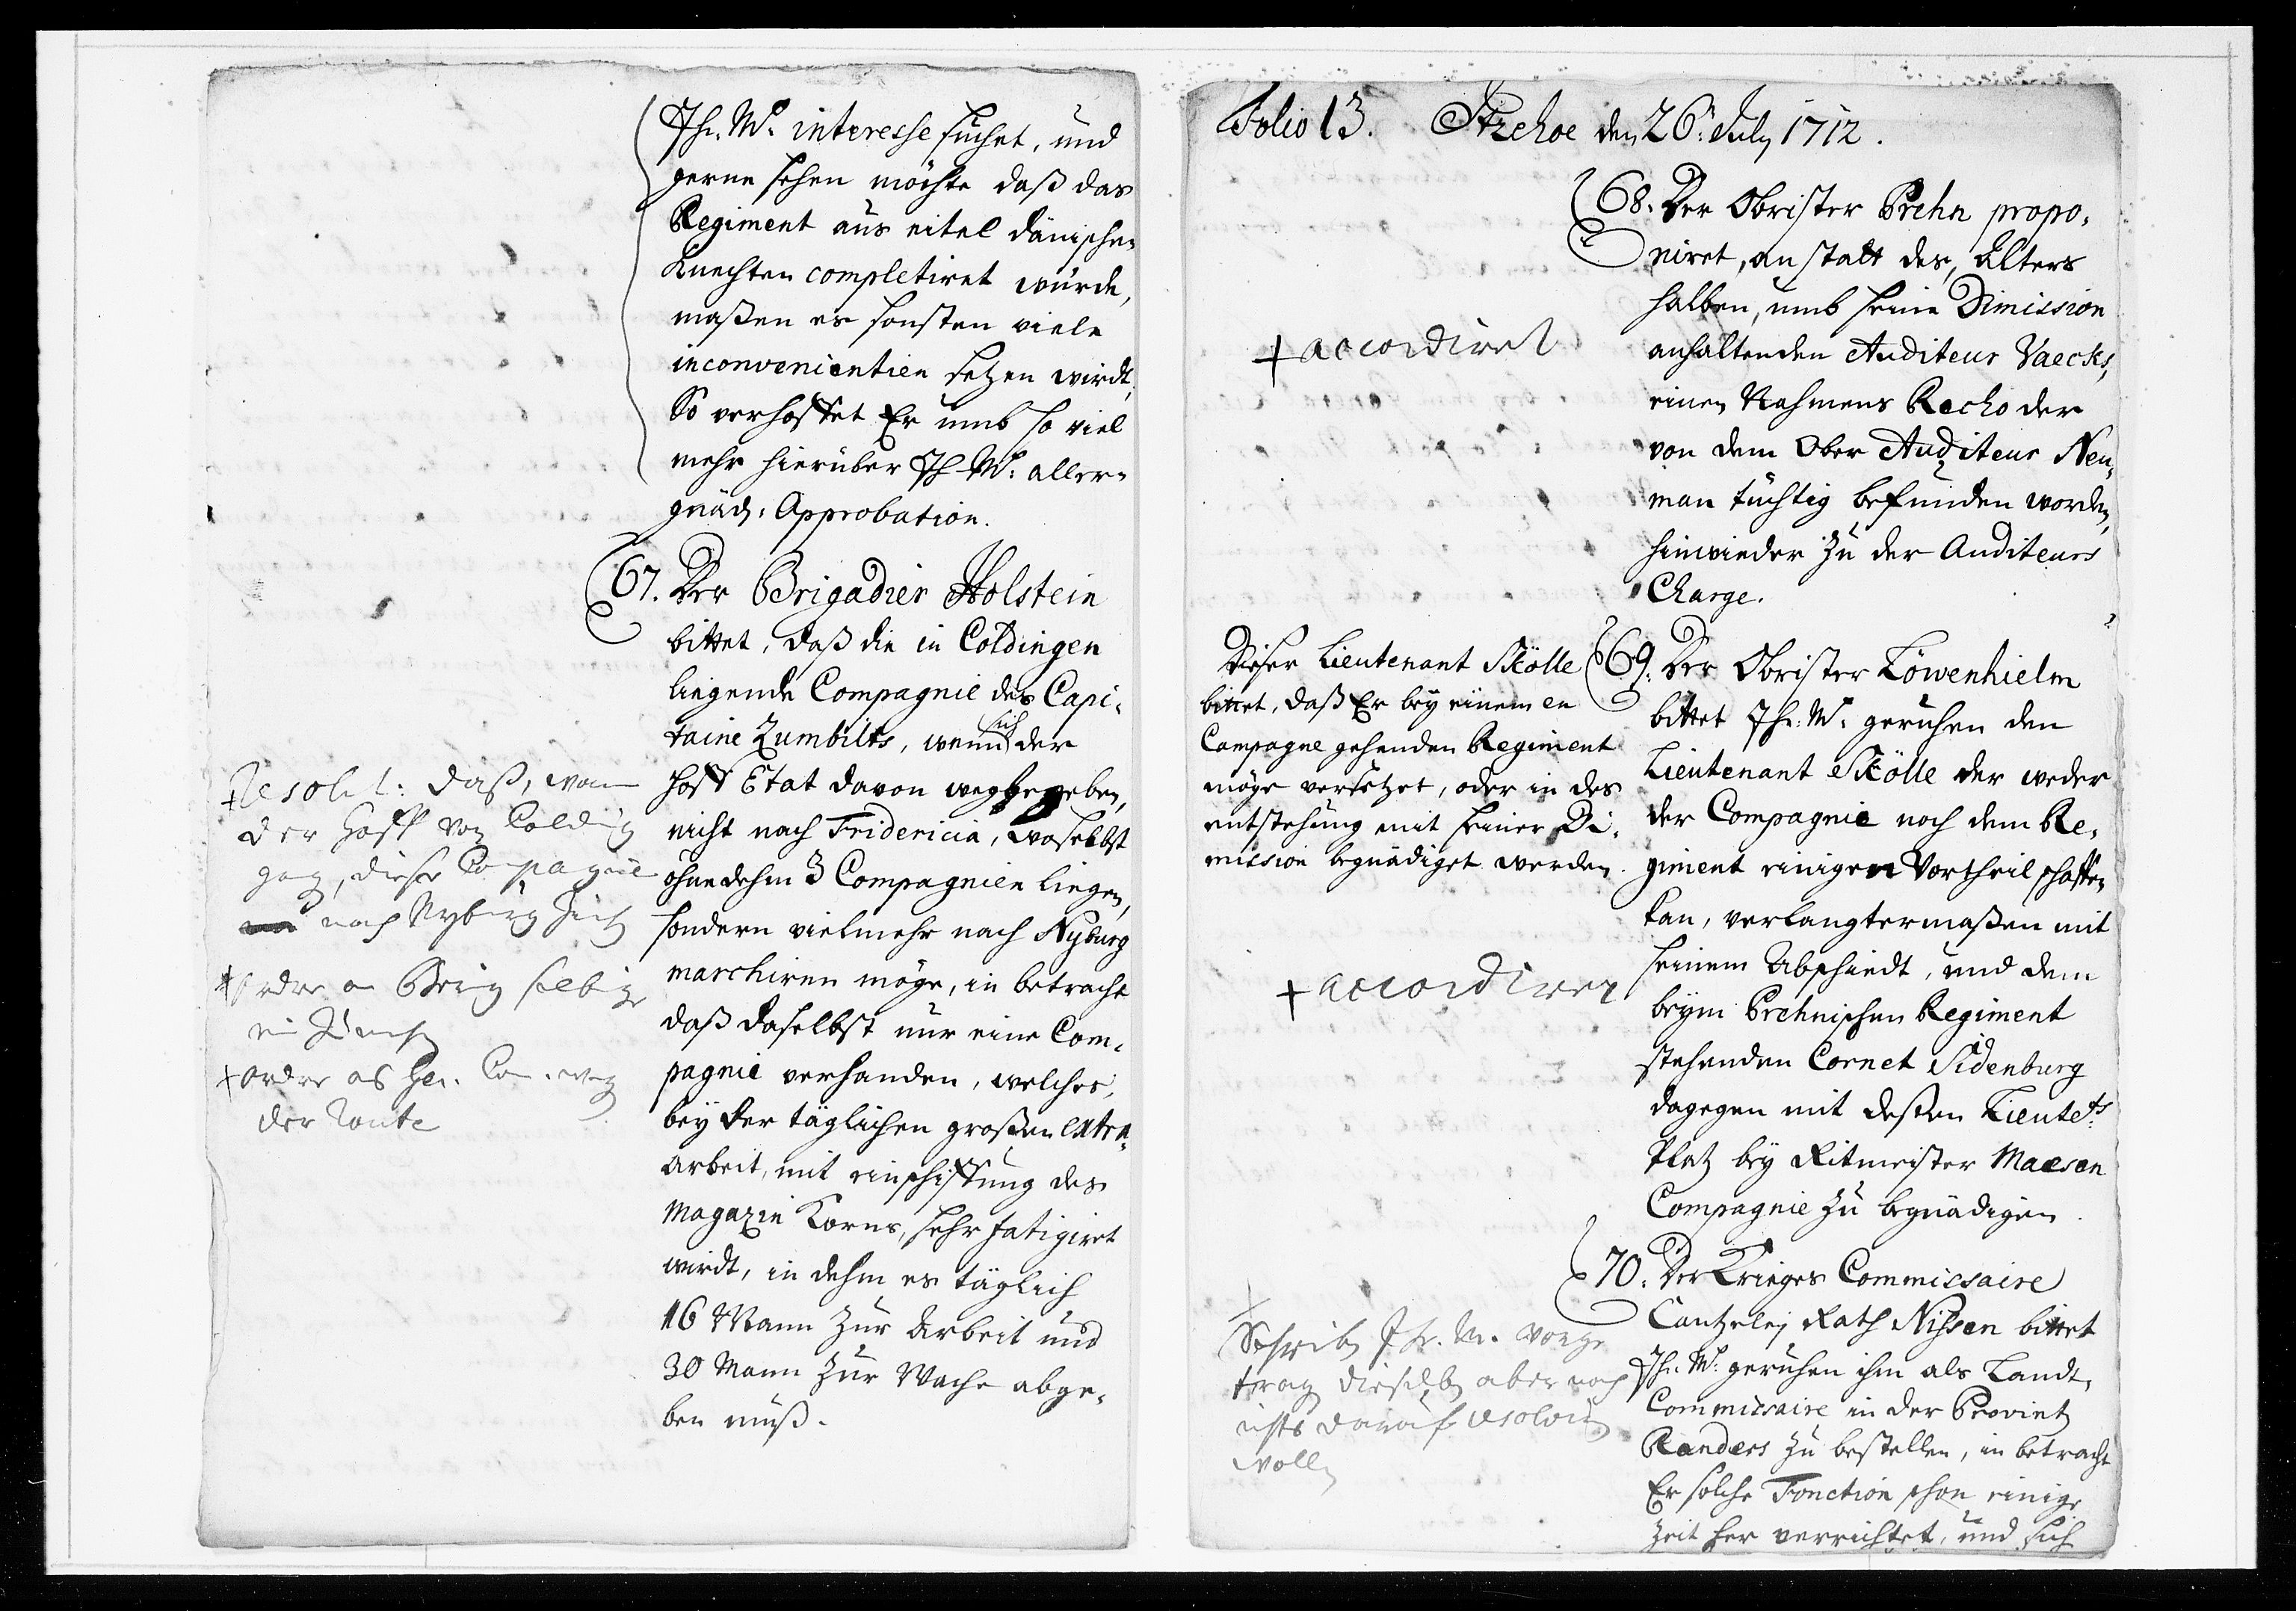 Jhr. Mt. interesse suchet, und
gerne sehen möchte daß das
Regiment aus eitel dänischen
Knechten completiret würde,
maßen es sonsten viele
inconvenientien setzen wirdt,
So verhoffet Er umb so viel
mehr hierüber Jh Mt. aller-
gnäd. Approbation.
67. Der Brigadier Holstein
bittet, daß die in Coldingen
liegende Compagnie des Capi-
taine Zumbilts, wenn sich der
Hoff Etat davon wegbegeben,
nicht nach Fridericia, woselbst
ohnedehm 3 Compagnien liegen,
sondern vielmehr nach Nyburg
marchiren möge, in betracht
daß daselbst nur eine Com-
pagnie verhanden, welches,
bey der täglichen großen extra
arbeit, mit einschiffung des
Magazin Korns, sehr fatigiret
wirdt, in dehm es täglich
16 Mann zur Arbeit und
30 Mann zur Wache abge-
ben muß.
+ Resolut: daß, wan
der Hoff von Colding
gang, diese Compagnie
nach Nyburg
+ Ordre an Brig
+ ordre as Gen. Com. weg
der Route
Folio 13. Itzehoe den 26. July 1712.
68. Der Obrister Prehn propo-
niret, an statt des, Alters
halben, umb seine Dimission
anhaltenden Auditeur Vaecks,
einen Nahmens Recho der
von dem Ober Auditeur Neu-
man tüchtig befunden worden,
hinwieder zu der Auditeurs
Charge.
+ accordiret
69. Der Obrister Löwenhielm
bittet Jhr. Mt. geruhen den
Lieutenant Skölle der weder
der Compagnie noch dem Re-
giment einigen Vortheil schaffen
kan, verlangtermaßen mit
seinem Abschiedt, und dem
beym Prehnischen Regiment
stehenden Cornet Sidenburg
dagegen mit deßen Lieutets
Platz bey Ritmeister Maesen
Compagnie zu begnädigen.
Dieser Lieutenant Skölle
bittet, daß Er bey einem en
Campagne gehenden Regiment
möge versetzet, oder in des
entstehung mit seiner Di-
mission begnädiget werden.
+ accordiret
70. Der Krieges Commissaire
Cantzeley Rath Nissen bittet
Jhr. Mt. geruhen ihm als Landt-
Commissaire in der Provintz
Randers zu bestellen, in betracht
Er solche Fonction schon einige
Zeit her verrichtet, und sich
+
Jhr. M. vorge
trag dieselb aber noch
nichts darauf resolvir
woll